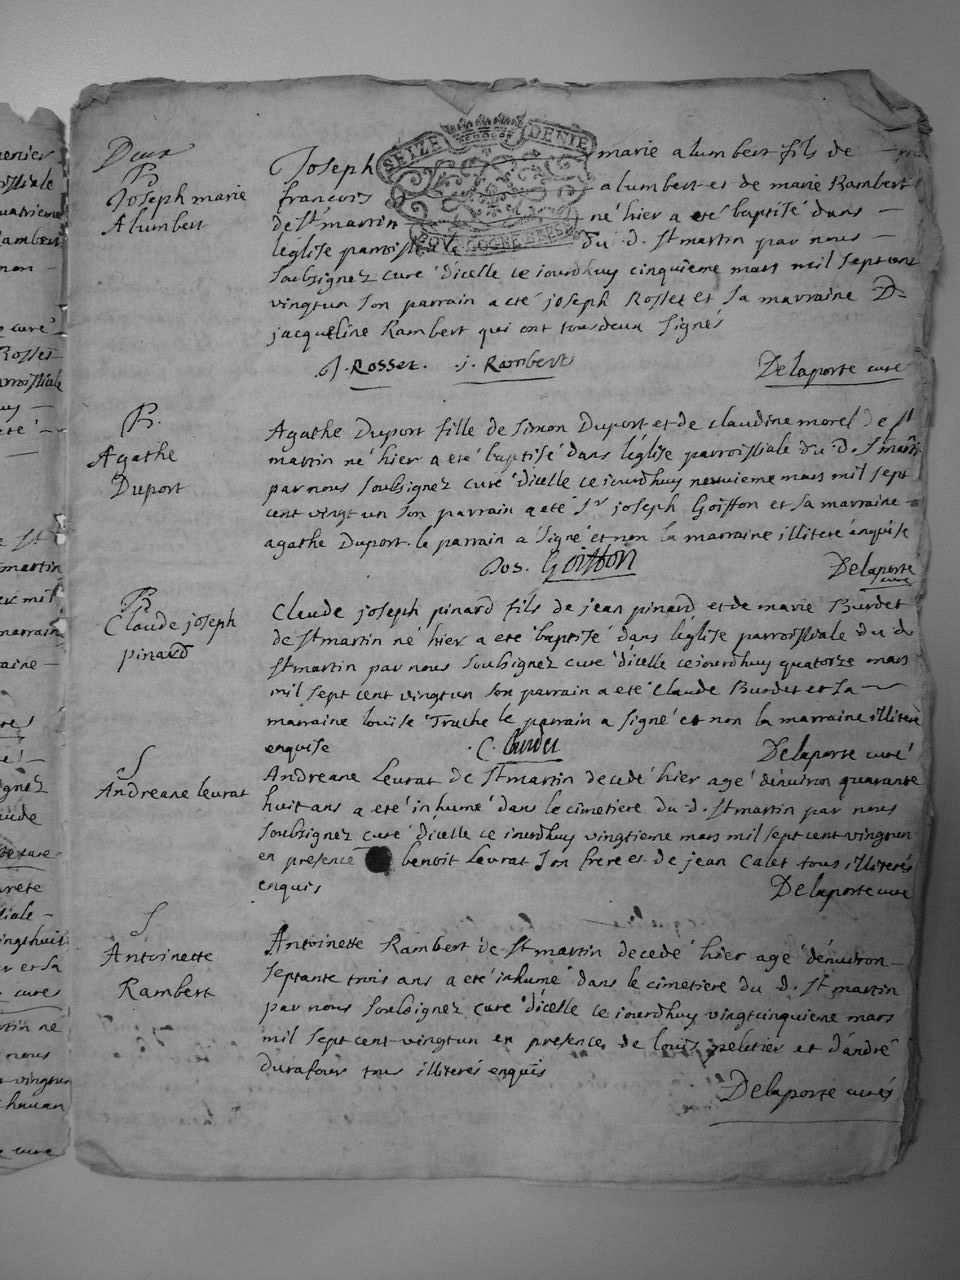 Deux
SEIZE DENIE
BOURGOGNE BRESSE
B
Joseph marie
Alumbert
Joseph marie alumbert fils de
francois alumbert et de marie Rambert
de St martin né hier a eté baptisé dans
léglise parroissiale du d. St martin par nous
soubsignez curé dicelle ce iourdhuy cinquieme mars mil sept cent
vingtun son parrain a eté joseph Rosset et sa marraine D
jacqueline Rambert qui ont tous deux signés
J. Rosset. j. Rambert Delaporte curé
B.
Agathe
Duport
Agathe Duport fille de simon Duport et de claudine morel de st
martin né hier a eté baptisé dans léglise parroissiale du d. St martin
par nous soubsignez curé dicelle ce iourdhuy neuvieme mars mil sept
cent vingt un son parrain a eté Sr joseph Goiffon et sa marraine
agathe Duport. le parrain a signé et non la marraine illiteré énquise
Jos. Goiffon Delaporte
curé
B
Claude joseph
pinard
Claude joseph pinard fils de jean pinard et de marie Burdet
de St martin né hier a eté baptisé dans léglise parroissiale du d.
St martin par nous soubsignez curé dicelle ce iourdhuy quatorze mars
mil sept cent vingtun son parrain a eté Claude Burdet et sa
marraine louise Truche le parrain a signé et non la marraine illiteré
enquise C. Burdet Delaporte curé
S
Andreane leurat
Andreane Leurat de St martin decedé hier agé dénuiron quarante
huit ans a eté inhumé dans le cimetiere du d. St martin par nous
soubsignez curé dicelle ce iourdhuy vingtieme mars mil sept cent vingtun
en presence benoit Leurat son frere et de jean Calet tous illiterés
enquis Delaporte curé
S
Antoinette
Rambert
Antoinette Rambert de St martin decedé hier agé dénuiron
septante trois ans a eté inhumé dans le cimetiere du d. St martin
par nous soubsignez curé dicelle ce iourdhuy vingtcinquieme mars
mil sept cent vingtun en presence de louis peletier et dandré
durafour tous illiterés enquis
Delaporte curés